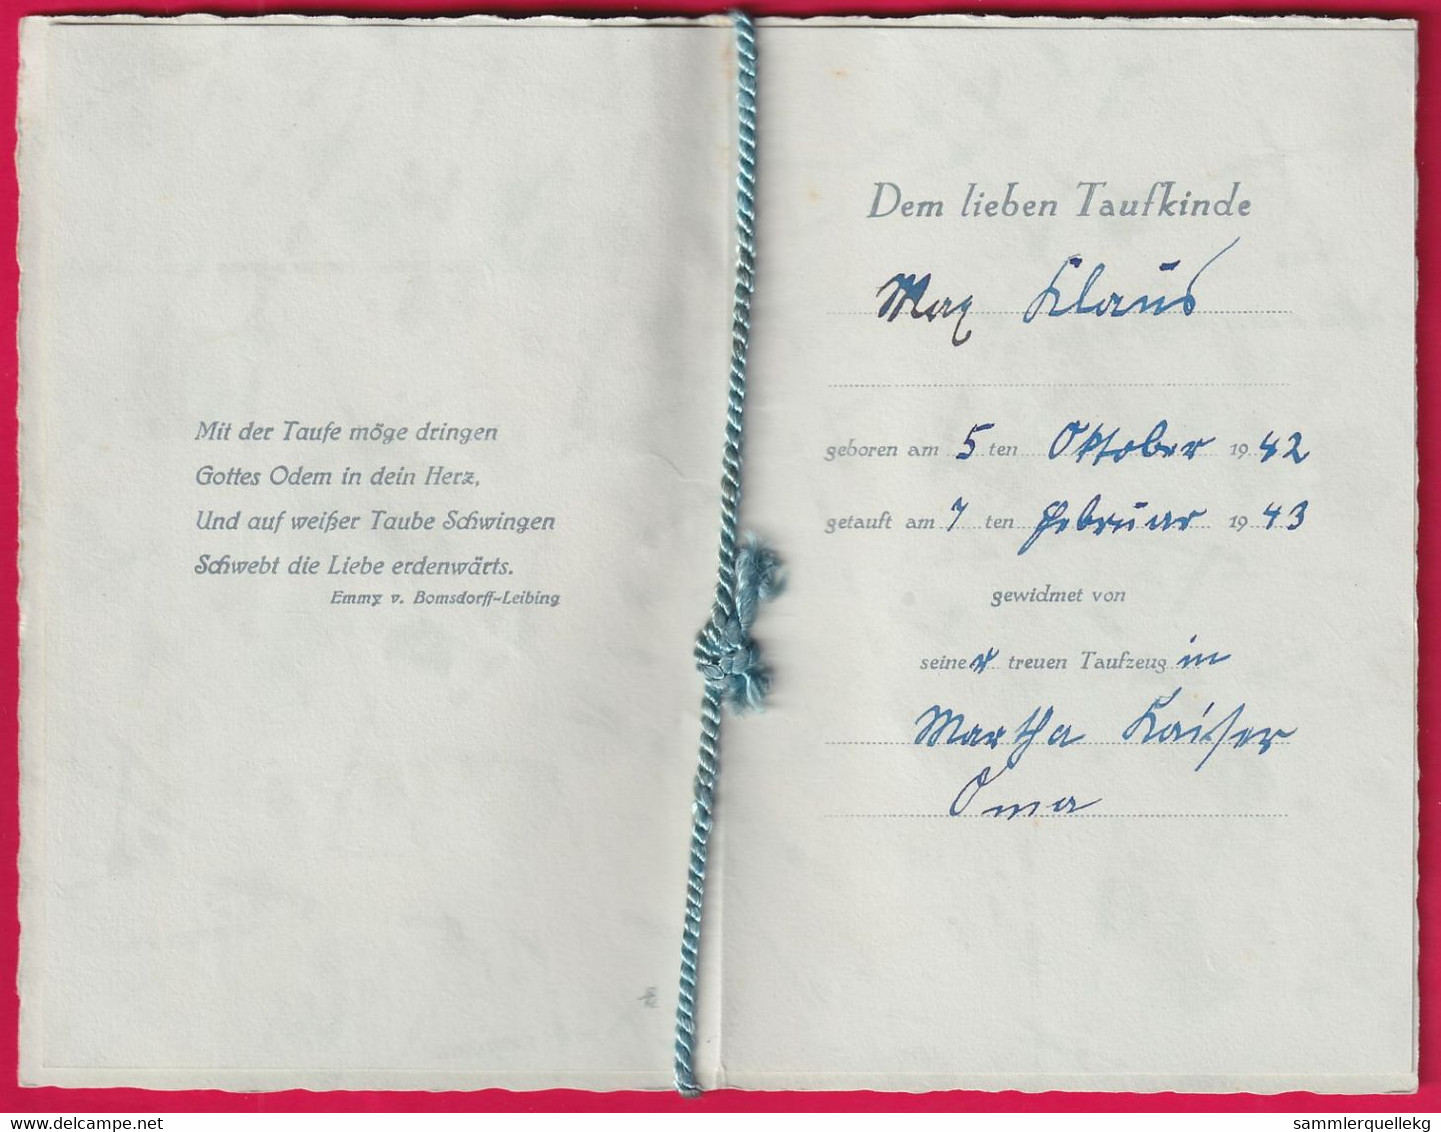 Mit der Taufe möge dringen
Gottes Odem in dein Herz,
Und auf weißer Taube Schwingen
Schwebt die Liebe erdenwärts.
Emmy v. Bomsdorff-Leibing
Dem lieben Taufkinde
Max Klaus
geboren am 5 ten Oktober 1942
getauft am 7 ten Februar 1943
gewidmet von
seiner treuen Taufzeugin
Martha Kaiser
Oma
sammlerquellekg